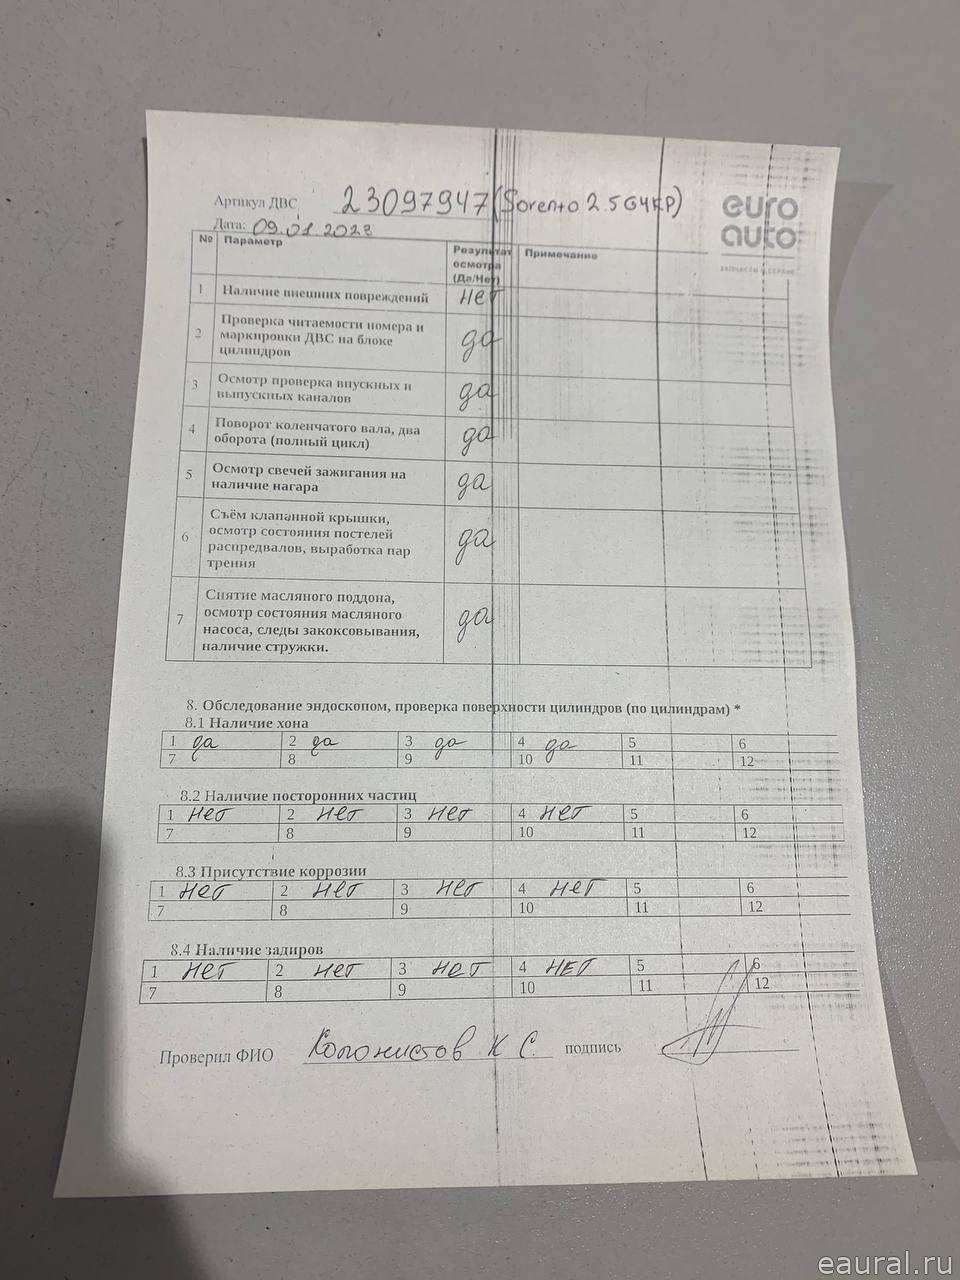 Артикул ДВС 23097947 (Sorento 2.5 G4KP)
euro
auto
ЗАПЧАСТИ И СЕРВИС
Дата: 09.01.2023
№ Параметр Результат осмотра (Да/Нет) Примечание
1 Наличие внешних повреждений нет
2 Проверка читаемости номера и
маркировки ДВС на блоке
цилиндров да
3 Осмотр проверка впускных и
выпускных каналов да
4 Поворот коленчатого вала, два
оборота (полный цикл) да
5 Осмотр свечей зажигания на
наличие нагара да
6 Съём клапанной крышки,
осмотр состояния постелей
распредвалов, выработка пар
трения да
7 Снятие масляного поддона,
осмотр состояния масляного
насоса, следы закоксовывания,
наличие стружки. да
8. Обследование эндоскопом, проверка поверхности цилиндров (по цилиндрам) *
8.1 Наличие хона
1 да 2 да 3 да 4 да 5 6
7 8 9 10 11 12
8.2 Наличие посторонних частиц
1 нет 2 нет 3 нет 4 нет 5 6
7 8 9 10 11 12
8.3 Присутствие коррозии
1 нет 2 нет 3 нет 4 нет 5 6
7 8 9 10 11 12
8.4 Наличие задиров
1 нет 2 нет 3 нет 4 нет 5 6
7 8 9 10 11 12
Проверил ФИО Колонистов К С. подпись
eaural.ru